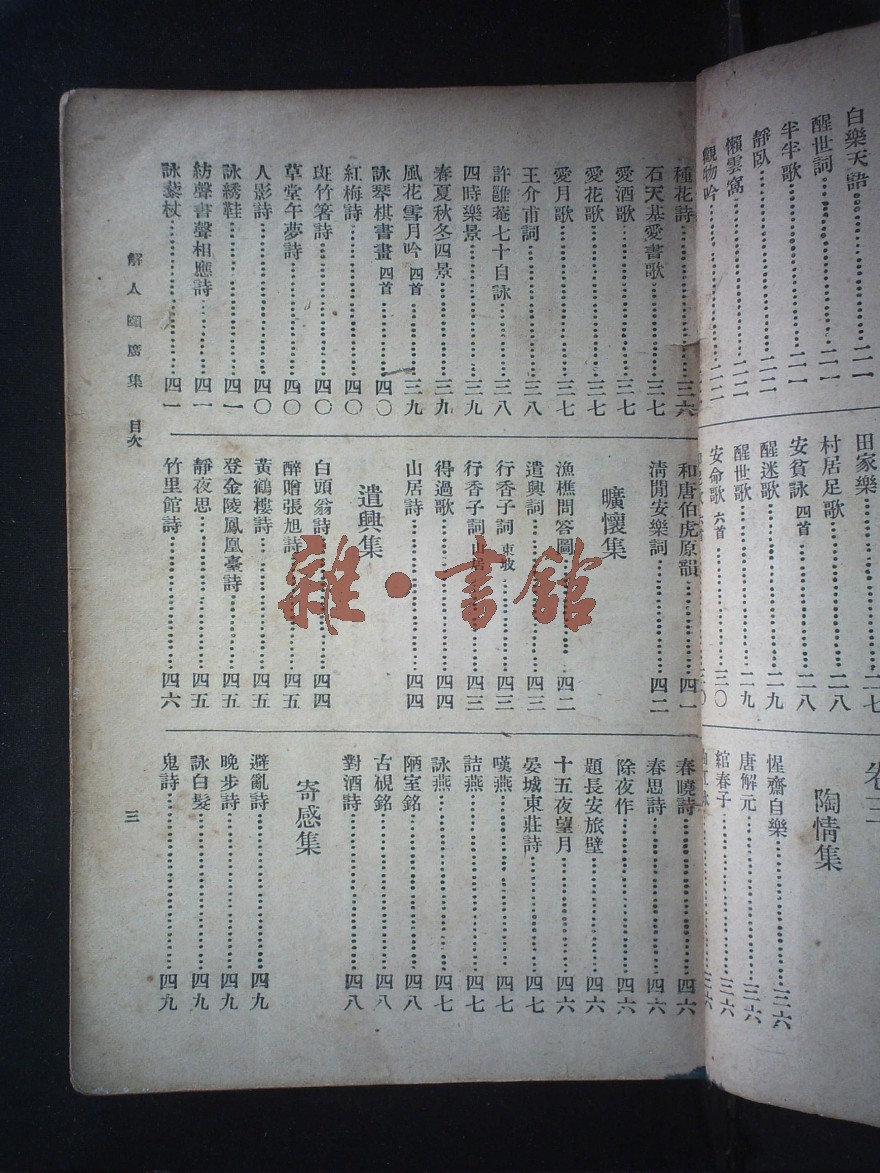 白樂天語 二一
醒世詞 二一
半半歌 二一
靜臥 二二
懶雲窩 二二
觀物吟 二二
田家樂 二七
村居足歌 二八
安貧詠 四首 二八
醒迷歌 二九
醒世歌 二九
安命歌 六首 三〇
三〇
卷三
陶情集
惺齋自樂 三六
唐解元 三六
綰春子 三六
三六
種花詩 三六
石天基愛書歌 三七
愛酒歌 三七
愛花歌 三七
愛月歌 三七
王介甫詞 三八
許雖菴七十自詠 三八
四時樂景 三九
春夏秋冬四景 三九
風花雪月吟 四首 三九
詠琴棋書畫 四首 四〇
紅梅詩 四〇
斑竹箸詩 四〇
草堂午夢詩 四〇
人影詩 四〇
詠綉鞋 四一
紡聲書聲相應詩 四一
詠藜杖 四一
和唐伯虎原韻 四一
清閒安樂詞 四二
曠懷集
漁樵問答圖 四二
遣興詞 四三
行香子詞 東坡 四三
行香子詞 山居 四三
得過歌 四四
山居詩 四四
遣興集
白頭翁詩 四四
醉贈張旭詩 四五
黃鶴樓詩 四五
登金陵鳳凰臺詩 四五
靜夜思 四五
竹里館詩 四六
春曉詩 四六
春思詩 四六
除夜作 四六
題長安旅壁 四六
十五夜望月 四六
晏城東莊詩 四七
嘆燕 四七
詰燕 四七
詠燕 四七
陋室銘 四八
古硯銘 四八
對酒詩 四八
寄感集
避亂詩 四九
晚步詩 四九
詠白髮 四九
鬼詩 四九
解人頤廣集 目次
三
雜·書館